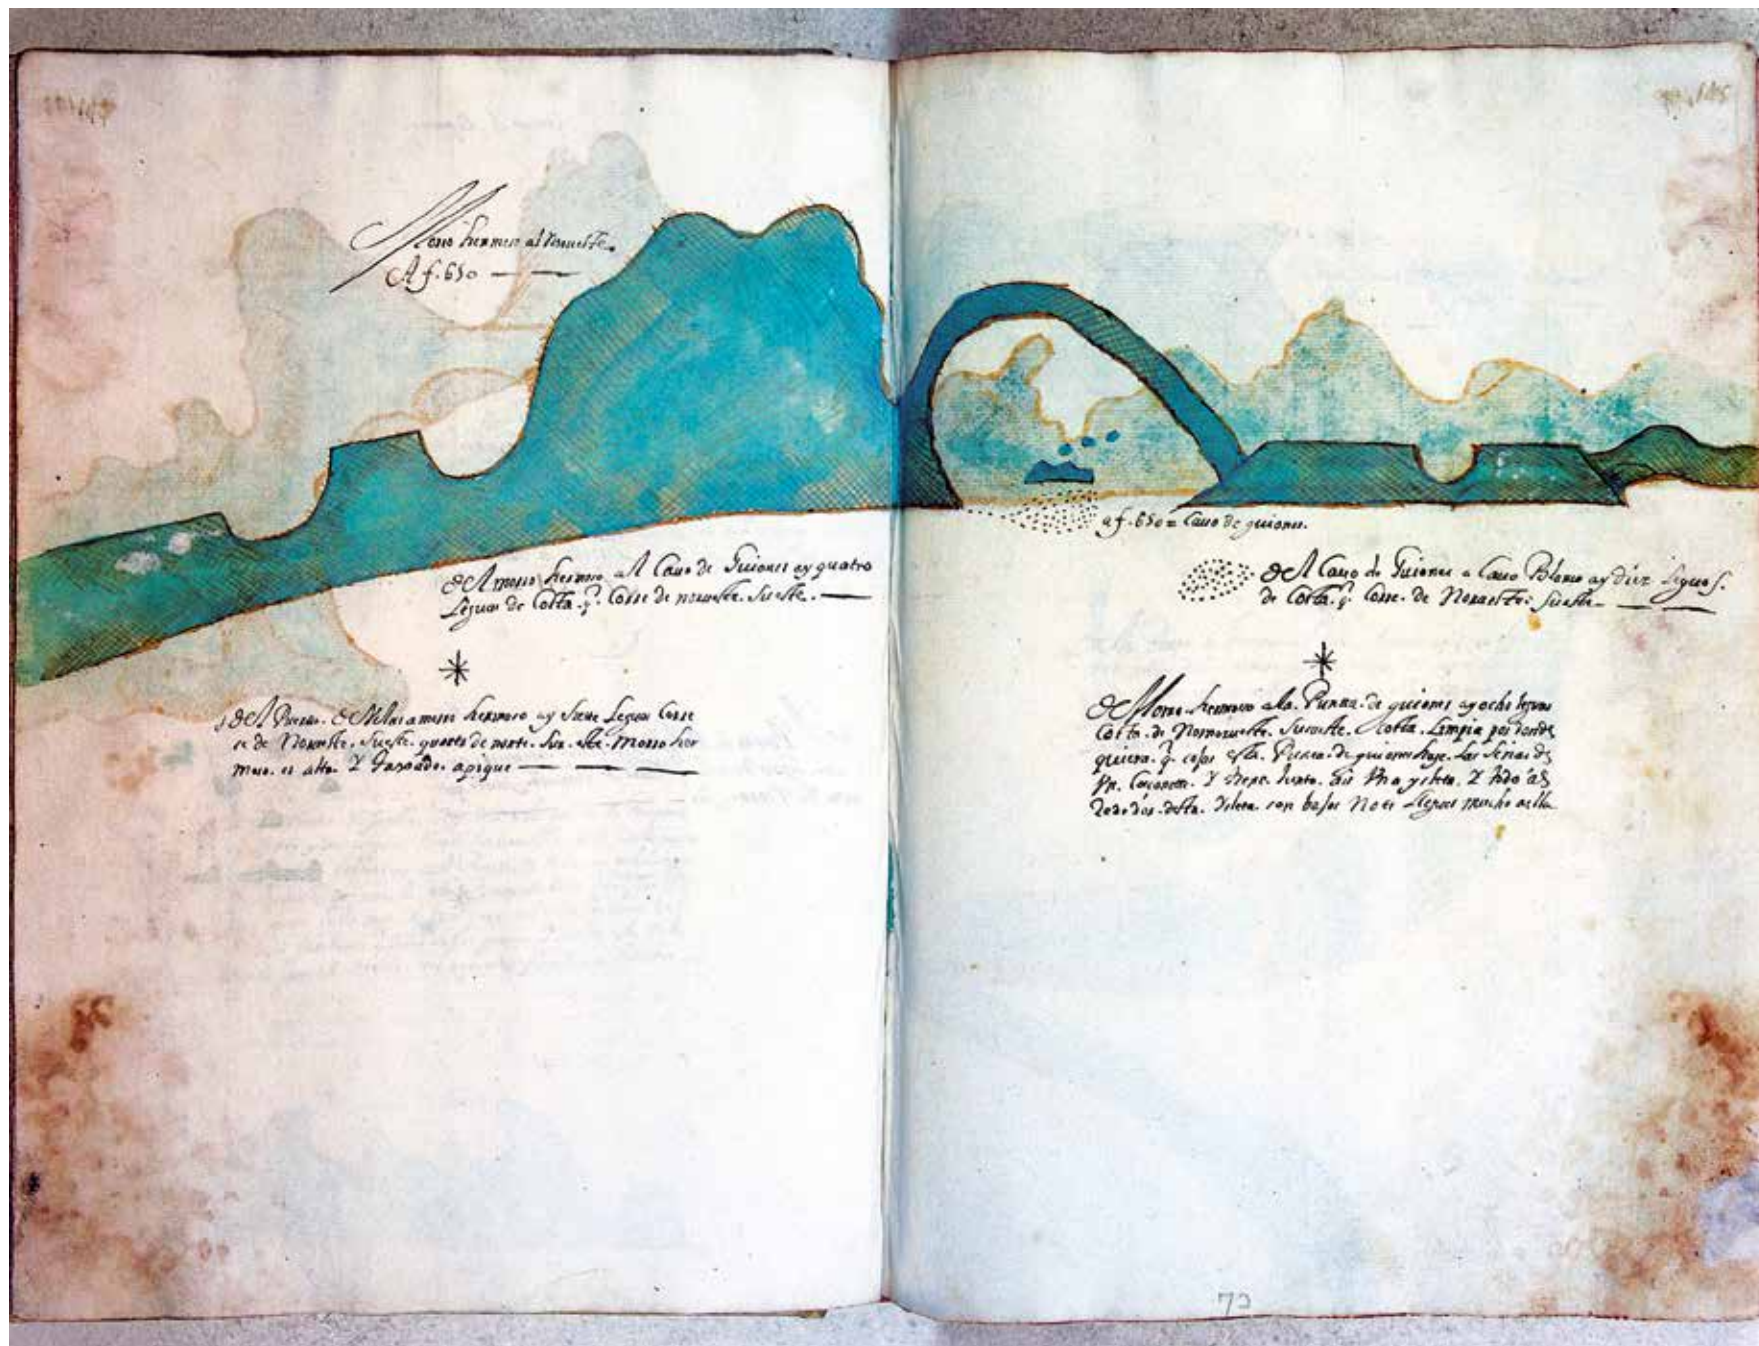 Morro hermoso al Norueste.
A f. 650
del morro hermoso al Cauo de Guiones ay quatro
Leguas de Costa. q. Corre de norueste. Sueste.
del Puerto. de Velas a morro hermoso ay Siete Leguas Corre
se de Norueste. Sueste. quarta de norte. Sur. este. Morro her
moso. es alto. Y taxado. apique
a f. 650 = Cauo de guiones.
del Cauo de Guiones a Cauo Blanco ay diez Leguas.
de Costa. q. Corre. de Norueste. Sueste.
del Morro. hermoso a la. Punta. de guiones ay ocho leguas
Costa. de Nornorueste. Sursueste. Costa. Limpia por donde
quiera. q. esta. Punta. de guiones haze. Las Señas de
Vn. Y tiene. Junto. assi Vna ysleta. Y todo al
Rededor. desta. Ysleta. son bajos No te llegues mucho aella
72